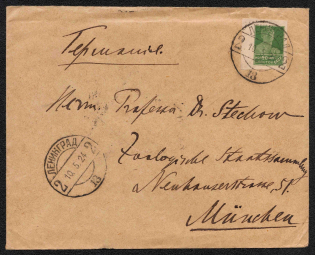 Германия.
Herrn Professor Dr. Stechow
Zoologische Staatssammlung
Neuhauserstrasse, 51.
München
ЛЕНИНГРАД
10.5.24